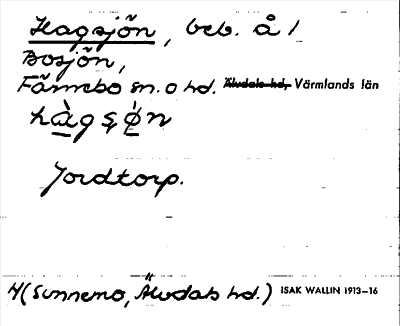 Hagsjön, beb. å 1
Bosjön,
Färnebo sn. o hd. Älvdals hd, Värmlands län
hàgsøn
Jordtorp.
H (Sunnemo, Älvdals hd.) ISAK WALLIN 1913–16